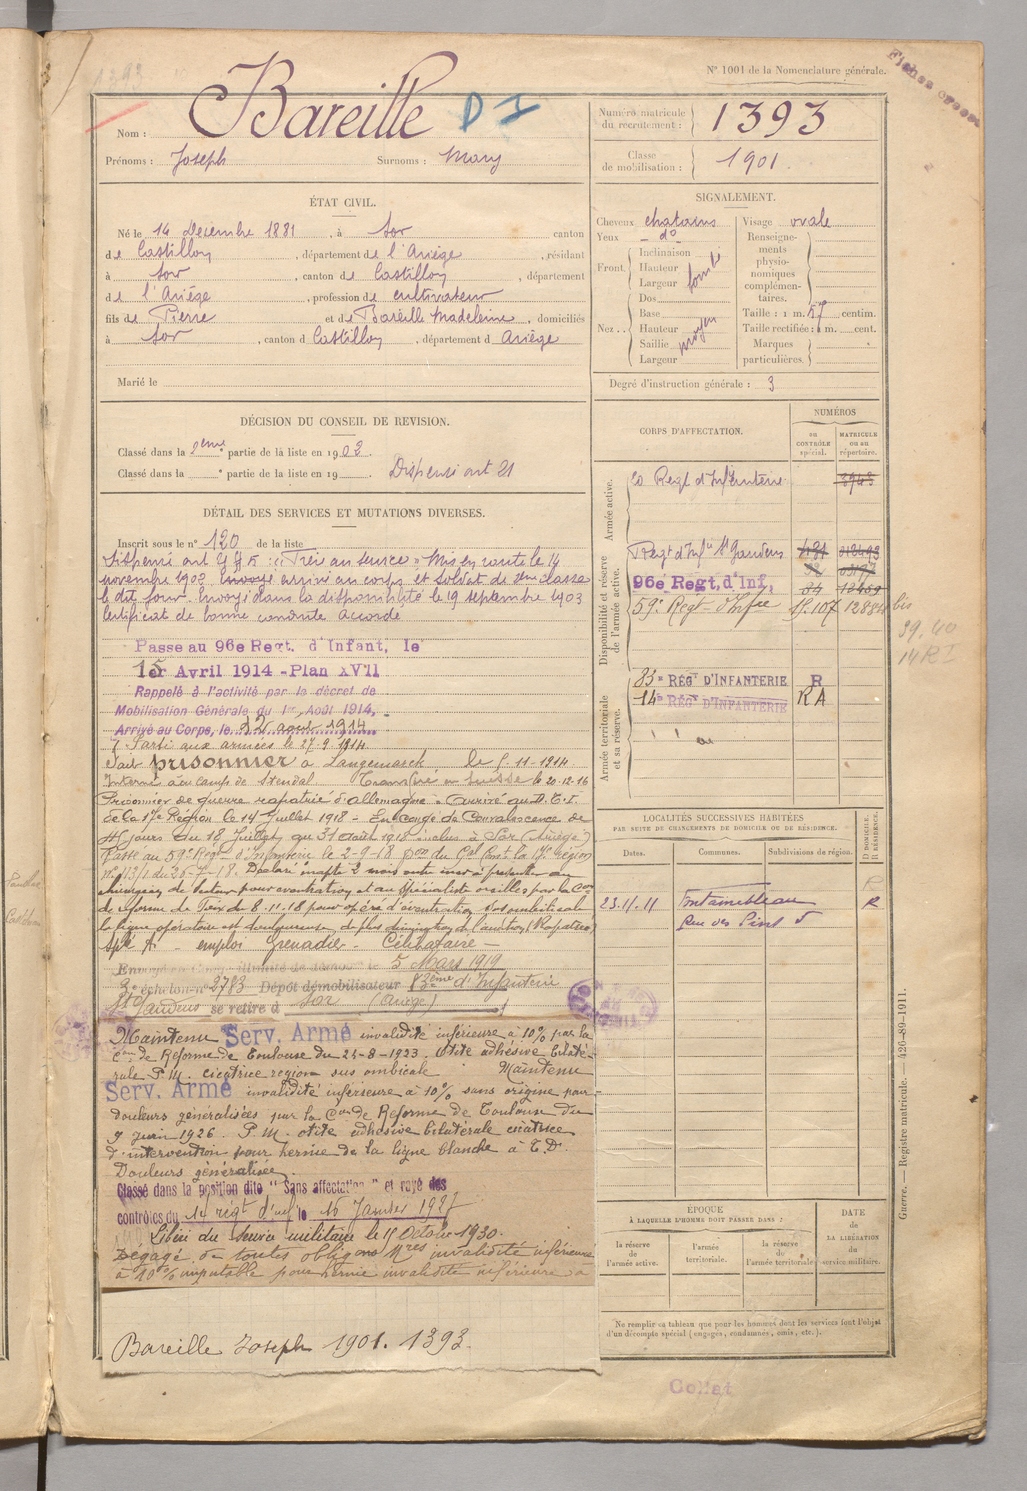 1393
N° 1001 de la Nomenclature générale.
Nom : Bareille D I
Prénoms : Joseph Surnoms : Mary
Numéro matricule du recrutement : 1393
Classe de mobilisation : 1901.
ÉTAT CIVIL.
Né le 14 Decembre 1881, à Sor canton
de Castillon, département de l'Ariège, résidant
à Sor, canton de Castillon, département
de l'Ariège, profession de cultivateur
fils de Pierre et de Bareille Madeleine, domiciliés
à Sor, canton d Castillon, département d Ariège
Marié le
SIGNALEMENT.
Cheveux chatains
Yeux – do –
Front. Inclinaison
Hauteur
Largeur
Dos
Nez .. Base
Hauteur moyen
Saillie
Largeur
Visage ovale
Renseignements physionomiques complémentaires.
Taille : 1 m. 57 centim.
Taille rectifiée : 1 m. cent.
Marques particulières.
Degré d'instruction générale : 3
DÉCISION DU CONSEIL DE REVISION.
Classé dans la 2eme partie de la liste en 1902.
Classé dans la ° partie de la liste en 19 . Dispensé art 21
DÉTAIL DES SERVICES ET MUTATIONS DIVERSES.
Inscrit sous le n° 120 de la liste
Dispensé art 21 : "Frère au service" Mis en route le 14
novembre 1902 arrivé au corps et soldat de 2eme classe
le dit jour. Envoyé dans la disponibilité le 19 septembre 1903
Certificat de bonne conduite accordé
Passé au 96e Regt. d'Infant, le
1er Avril 1914 - Plan XVII
Rappelé à l'activité par le décret de
Mobilisation Générale du 1er Août 1914,
Arrivé au Corps, le 12 août 1914
Parti aux armées le 27-9-1914
Fait prisonnier à Langemarck le 5-11-1914
Interné à au camp de Stendal Transféré en Suisse le 20-12-16
Prisonnier de guerre rapatrié d'allemagne - Arrivé au D.T.I.
de la 17e Région le 14 Juillet 1918 - En congé de Convalescence de
45 jours du 18 Juillet au 31 août 1918 inclus à Sor (Ariège)
Passé au 59e Regt d'Infanterie le 2-9-18 Son du Gal Cmt la 17e région
du 25-7-18. Déclaré inapte 2 mois
chirurgien de secteur pour éventration et au spécialiste oreilles par la Con
de réforme de Foix du 8-11-18 pour opéré d'éventration sus ombilicale
la ligne opératoire est douloureuse, de plus diminution de l'audition (Rapatrié)
Spté A - emploi Grenadier - Célibataire -
5 Mars 1919
3e échelon n° 2783 Dépôt démobilisateur 83ème d'Infanterie
St Gaudens se retire à Sor (Ariège)
Maintenu Serv. Armé invalidité inférieure à 10% par la
Con de Réforme de Toulouse du 25-8-1923. Otite adhésive bilaté-
rale P.M. cicatrice region sus ombilicale Maintenu
Serv. Armé invalidité inférieure à 10% sans origine pour
douleurs généralisées par la Con de Réforme de Toulouse du
9 juin 1926. P.M. otite adhésive bilatérale cicatrice
d'intervention pour hernie de la ligne blanche à T.D.
Douleurs généralisées.
Classé dans la position dite "Sans affectation" et rayé des
contrôles du 14 régt d'inf le 15 Janvier 1927
Libéré du service militaire le 15 Octobre 1930.
Dégagé de toutes obligons Mres invalidité inférieure
à 10% imputable pour hernie invalidité inférieure à
Bareille Joseph 1901. 1393.
CORPS D'AFFECTATION.
NUMÉROS
au CONTRÔLE spécial.
MATRICULE ou au répertoire.
Armée active.
20 Regt d'Infanterie 3943
Disponibilité et réserve de l'armée active.
Regt d'Infie St Gaudens
96e Regt, d'Inf,
59e Regt d'Infie 15.107 12884 bis
39.40
14 RI
Armée territoriale et sa réserve.
83e RÉGt D'INFANTERIE R
14e RÉGt D'INFANTERIE RA
LOCALITÉS SUCCESSIVES HABITÉES
PAR SUITE DE CHANGEMENTS DE DOMICILE OU DE RÉSIDENCE.
Dates.
Communes.
Subdivisions de région.
D DOMICILE. R RÉSIDENCE.
R
23.11.11 Fontainebleau R
Rue des Pins 5
ÉPOQUE
À LAQUELLE L'HOMME DOIT PASSER DANS :
la réserve de l'armée active.
l'armée territoriale.
la réserve de l'armée territoriale
DATE de LA LIBÉRATION du service militaire.
Ne remplir ce tableau que pour les hommes dont les services font l'objet
d'un décompte spécial (engagés, condamnés, omis, etc.).
Guerre. — Registre matricule. — 426-89-1911.